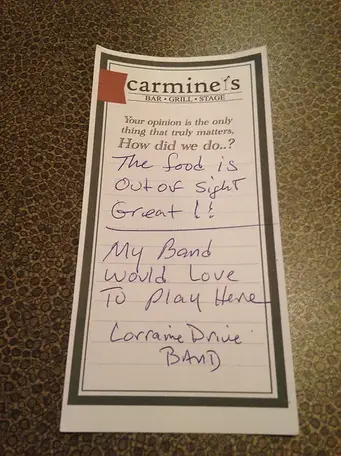 carmine's
BAR • GRILL • STAGE
Your opinion is the only
thing that truly matters,
How did we do..?
The food is
Out of sight
Great !!
My Band
Would Love
To Play Here
Lorraine Drive
BAND